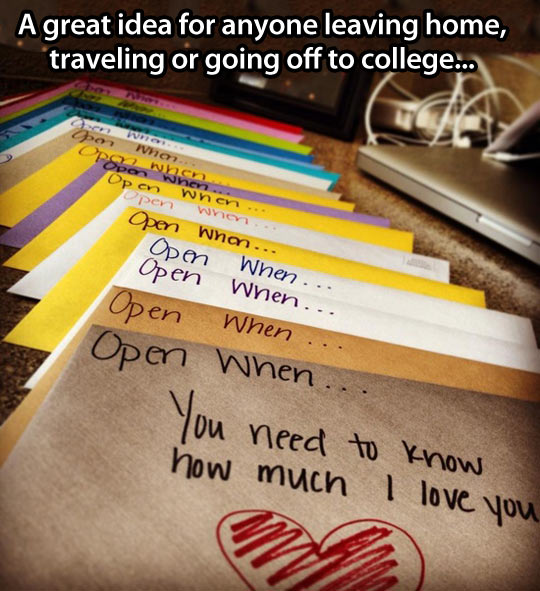 A great idea for anyone leaving home,
traveling or going off to college...
Open When...
Open When...
Open When...
Open When...
Open When...
Open When...
Open When...
Open When...
Open When...
Open When...
Open When...
Open When...
Open When...
Open When...
You need to know
how much I love you